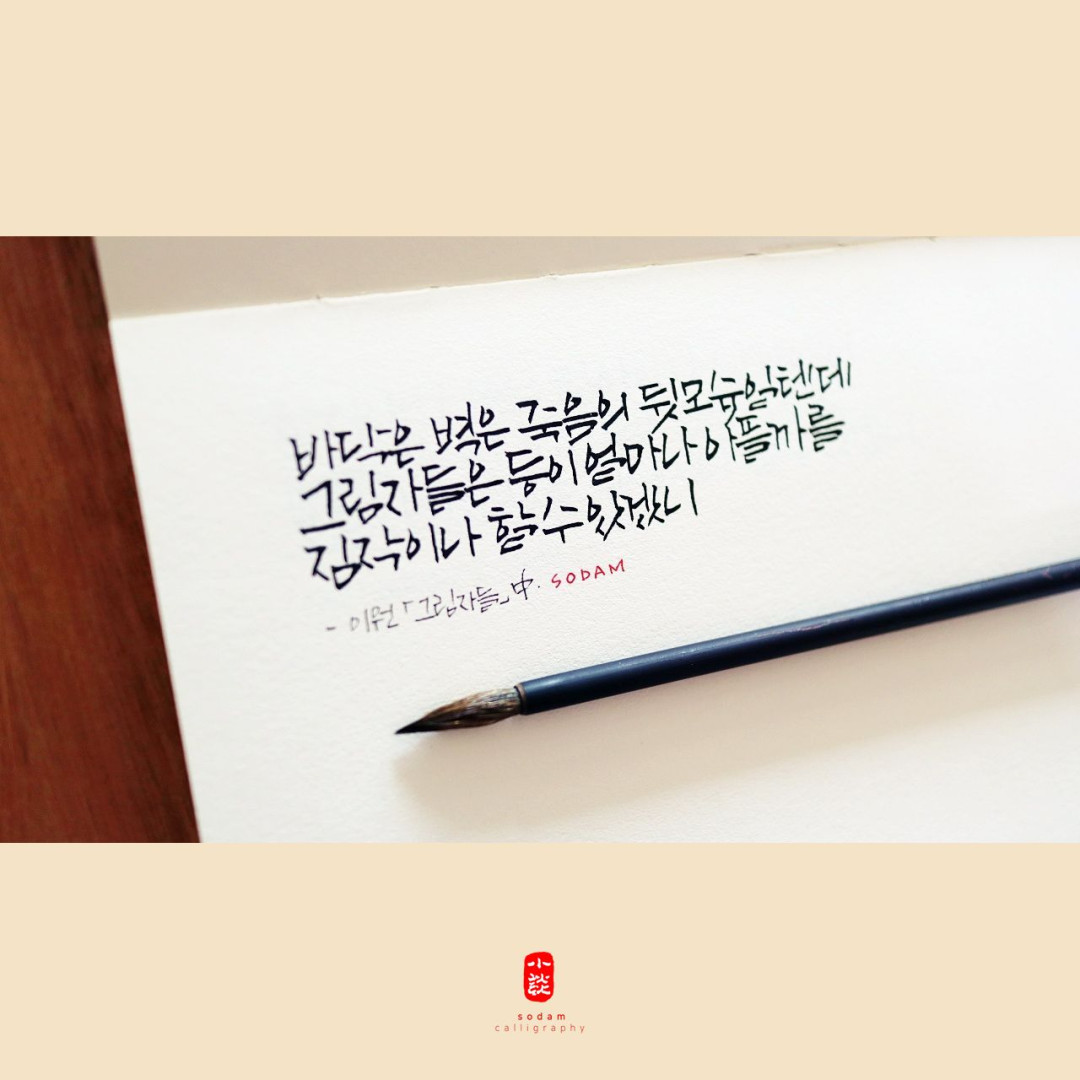 바닥은 벽은 죽음의 뒷모습일텐데
그림자들은 등이 얼마나 아플까를
짐작이나 할 수 있겠니
- 이원「그림자들」中. SODAM
小
談
sodam
calligraphy